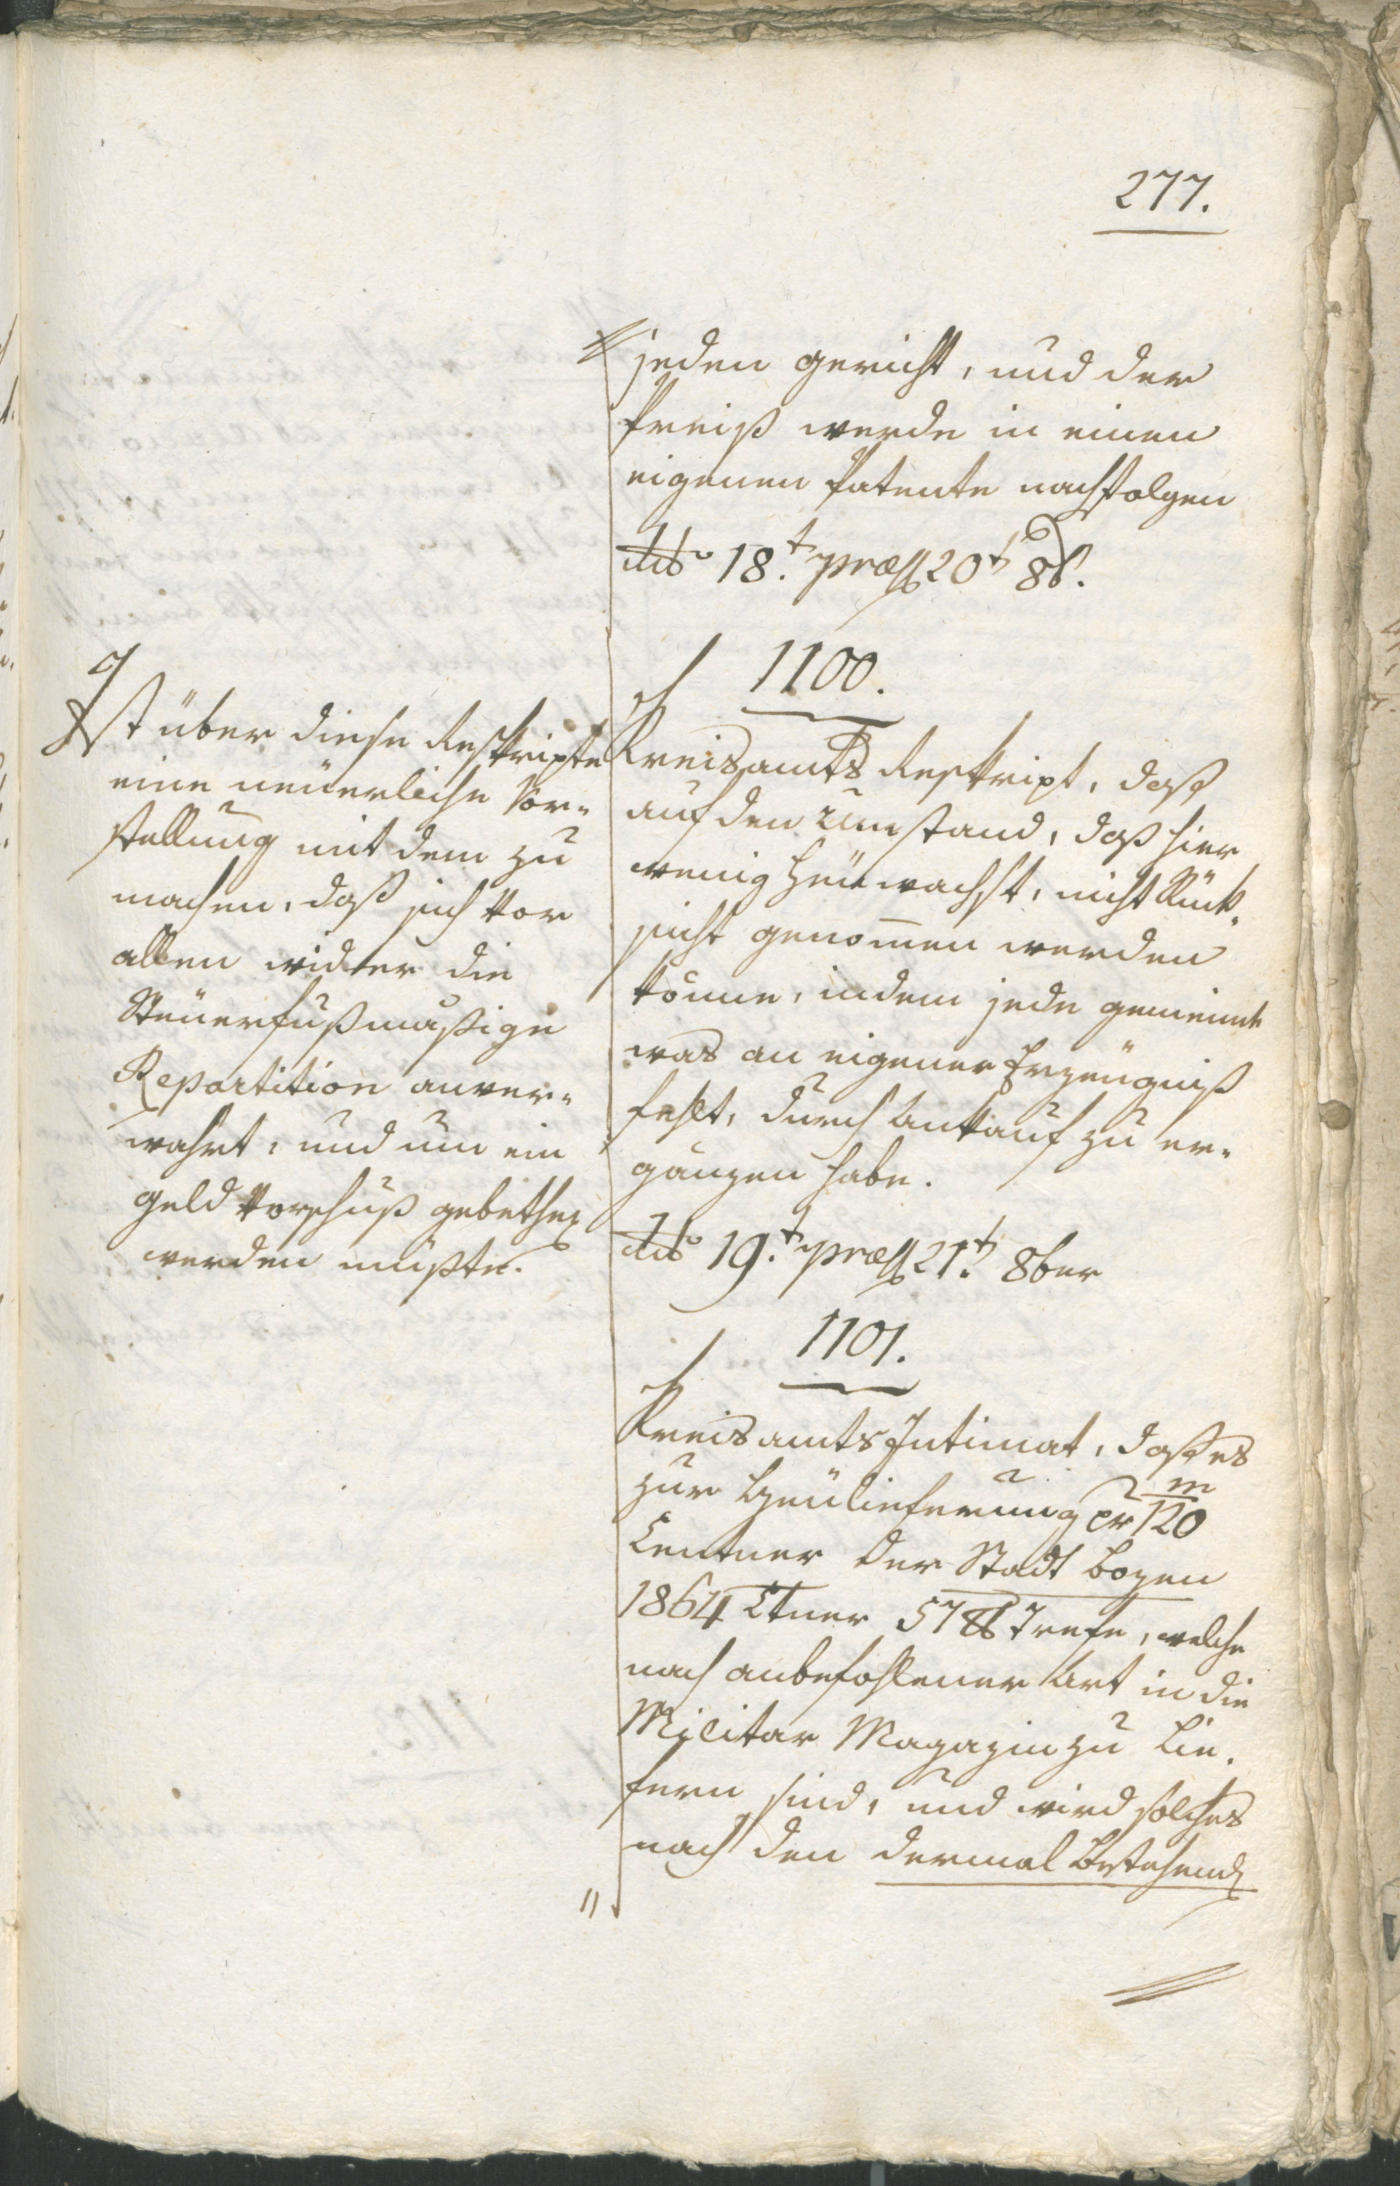 277.
jeden gericht, und der
Preiß werde in einen
eigenen Patente nachfolgen
dto 18.t præs 20t 8b.
1100.
Kreisamts Reskript, daß
auf den Umstand, daß hier
wenig Heu wachst, nicht Rück-
sicht genom̄en werden
könne, indem jede gemeinde
was an eigener Erzeugniß
fehlt, durch Ankauf zu er-
gänzen habe.
dto 19.t præs 21.t 8ber
Ist über diese Reskripte
eine neuerliche Vor-
stellung mit dem zu
machen, daß sich vor
allen wider die
Steuerfußmaßige
Repartition anver-
wahrt, und um ein
geld Vorschuß gebethen
werden müßte.
1101.
Kreisamts Intimat, daß es
zur Heulieferung pr 120 m
Centner der Stadt Bozen
1864 Ctner 57 ℔ Trefe, welche
nach anbefohlener Art in die
Militar Magazin zu lie-
fern sind, und wird solches
nach den dermal bestehend